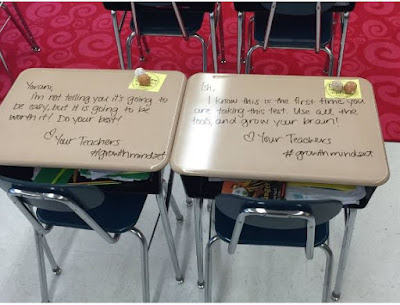 I'm not telling you it's going to
be easy, but it is going to be
worth it! Do your best!
♡ Your Teachers
#growthmindset
Ish,
I know this is the first time you
are taking this test. Use all the
tools, and grow your brain!
♡ Your Teachers
#growthmindset